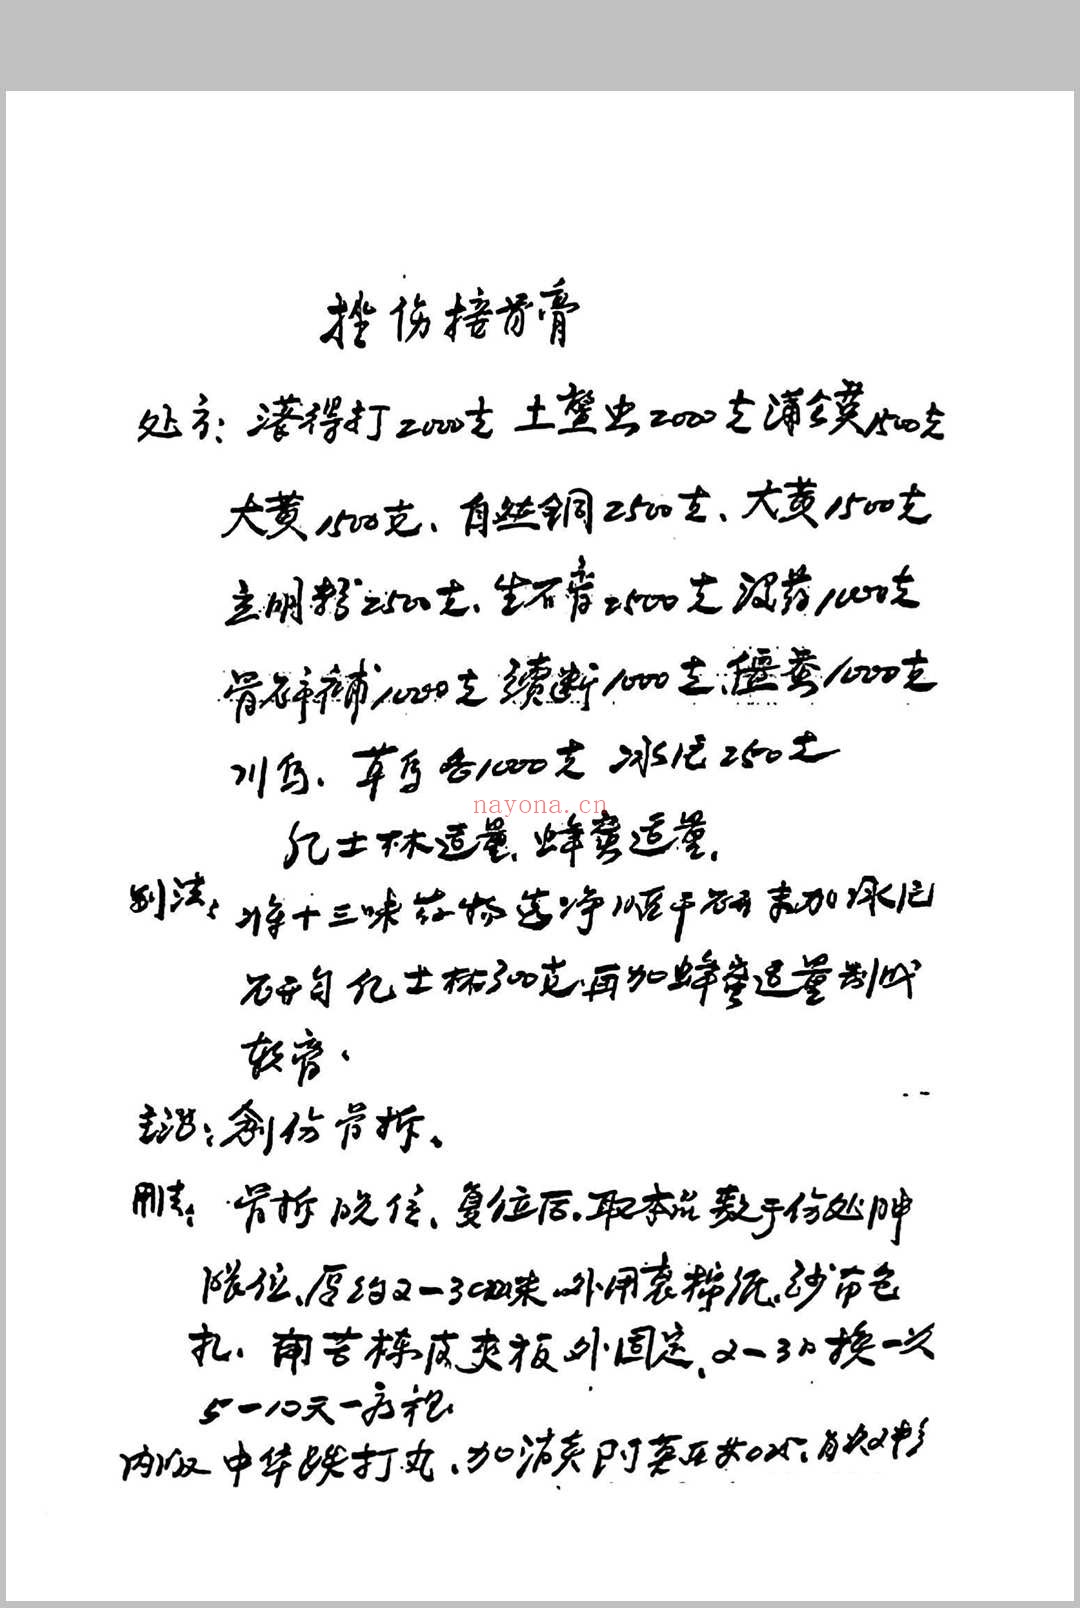 挫伤接骨膏
处方：落得打2000克 土鳖虫2000克 蒲公英1500克
大黄1500克、自然铜2500克、大黄1500克
玄明粉2500克、生石膏2500克 没药1000克
骨碎補1000克 續断1000克、僵蚕1000克
川乌、草乌各1000克 冰片250克
nayona.cn
凡士林适量、蜂蜜适量、
制法：将十三味药物选净 干研末加冰片
研匀凡士林500克、再加蜂蜜适量制成
软膏、
主治：创伤骨折。
用法：骨折脱位、复位后、取本品敷于伤处肿
胀位、厚约2—3 米、外用衷棉纸、纱布包
扎、再苦楝皮夹板外固定、2—3日换一次
5—10天一疗程
内服中华跌打丸、加消炎 每次2